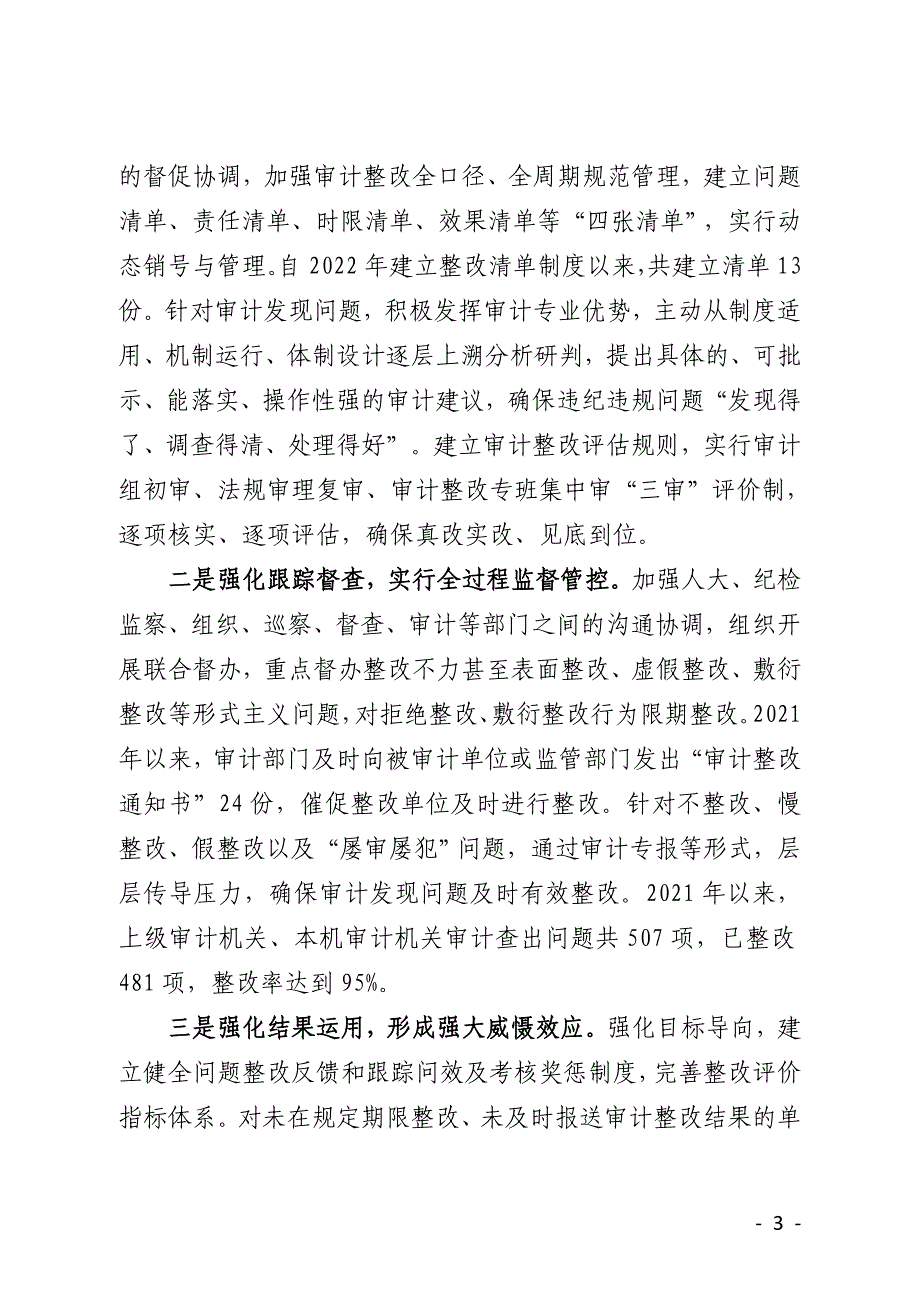 的督促协调，加强审计整改全口径、全周期规范管理，建立问题
清单、责任清单、时限清单、效果清单等“四张清单”，实行动
态销号与管理。自 2022 年建立整改清单制度以来，共建立清单 13
份。针对审计发现问题，积极发挥审计专业优势，主动从制度适
用、机制运行、体制设计逐层上溯分析研判，提出具体的、可批
示、能落实、操作性强的审计建议，确保违纪违规问题“发现得
了、调查得清、处理得好”。建立审计整改评估规则，实行审计
组初审、法规审理复审、审计整改专班集中审“三审”评价制，
逐项核实、逐项评估，确保真改实改、见底到位。
二是强化跟踪督查，实行全过程监督管控。加强人大、纪检
监察、组织、巡察、督查、审计等部门之间的沟通协调，组织开
展联合督办，重点督办整改不力甚至表面整改、虚假整改、敷衍
整改等形式主义问题，对拒绝整改、敷衍整改行为限期整改。2021
年以来，审计部门及时向被审计单位或监管部门发出“审计整改
通知书”24 份，催促整改单位及时进行整改。针对不整改、慢
整改、假整改以及“屡审屡犯”问题，通过审计专报等形式，层
层传导压力，确保审计发现问题及时有效整改。2021 年以来，
上级审计机关、本机审计机关审计查出问题共 507 项，已整改
481 项，整改率达到 95%。
三是强化结果运用，形成强大威慑效应。强化目标导向，建
立健全问题整改反馈和跟踪问效及考核奖惩制度，完善整改评价
指标体系。对未在规定期限整改、未及时报送审计整改结果的单
- 3 -